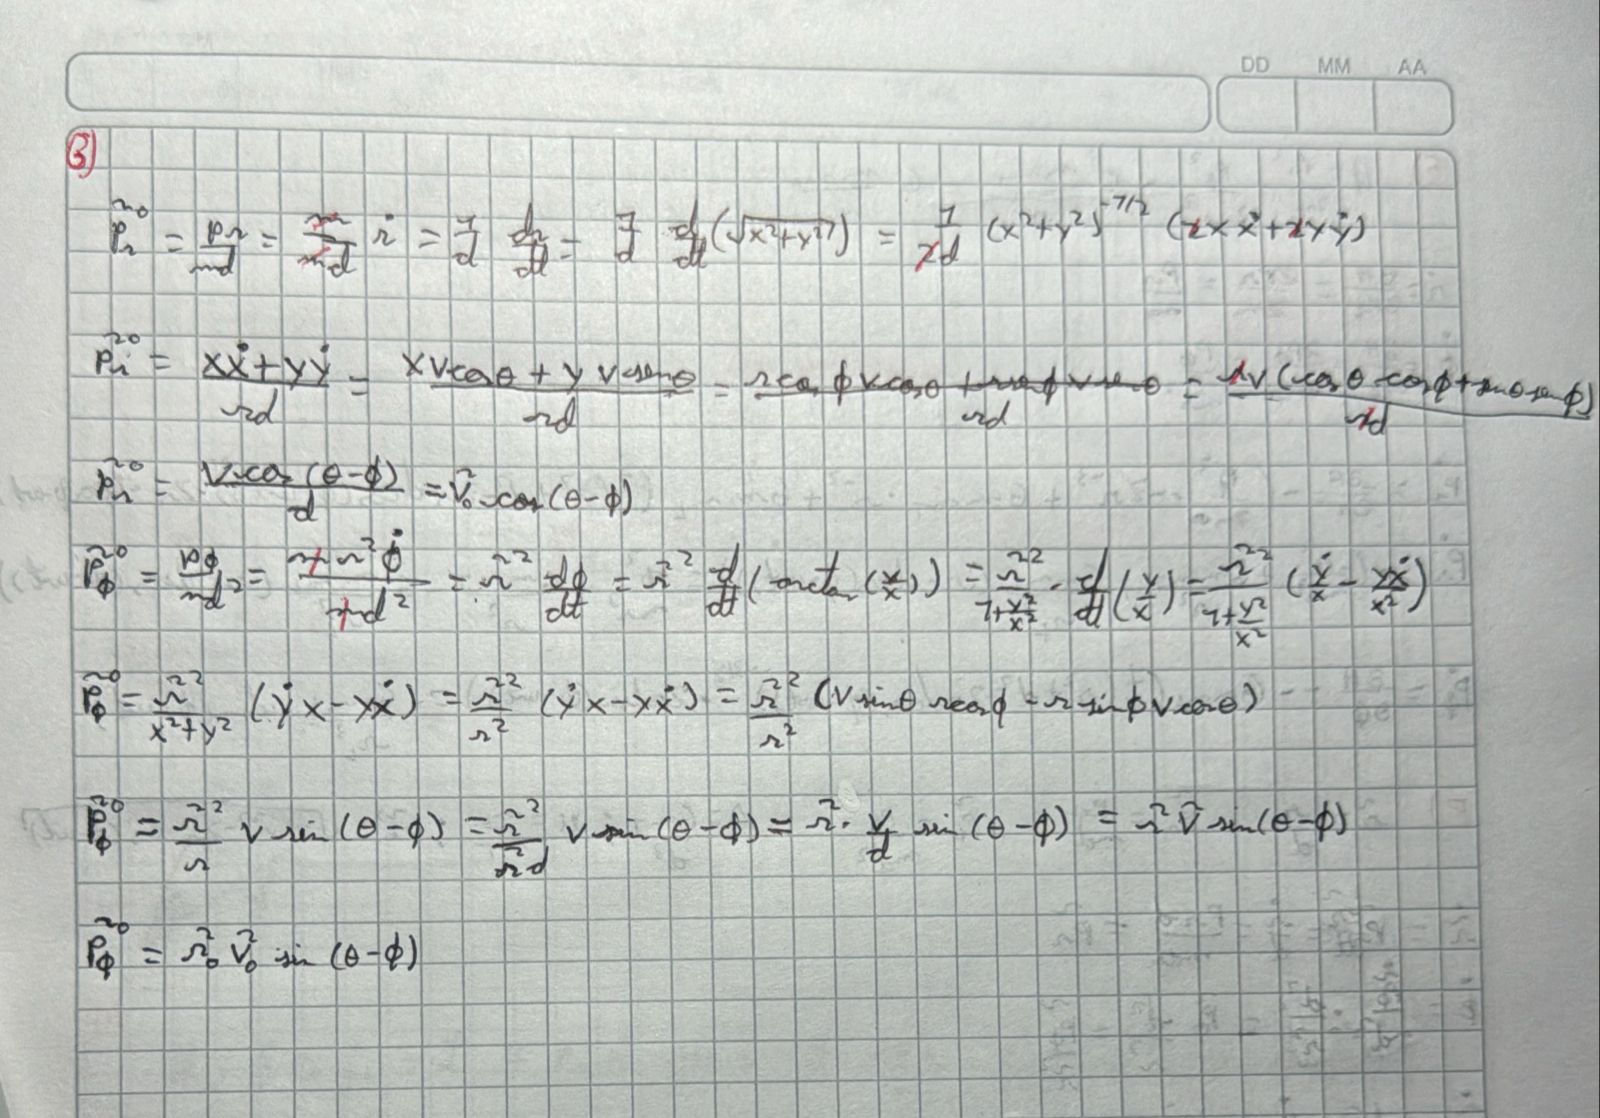 DD MM AA
3)
p̃_r^0 = p_r/md = m/md ṙ = 1/d dr/dt = 1/d d/dt(√(x²+y²)) = 1/2d (x²+y²)^(-1/2) (2xẋ+2yẏ)
p̃_r^0 = (xẋ+yẏ)/rd = (xv cosθ + y v senθ)/rd = (r cosϕ v cosθ + r senϕ v senθ)/rd = rv(cosθ cosϕ + senθ senϕ)/rd
p̃_r^0 = v cos(θ-ϕ)/d = ṽ_0 cos(θ-ϕ)
p̃_ϕ^0 = p_ϕ/md² = m r² ϕ̇/md² = r̃² dϕ/dt = r̃² d/dt(arctan(y/x)) = r̃²/(1+y²/x²) · d/dt(y/x) = r̃²/(1+y²/x²) (ẏ/x - yẋ/x²)
p̃_ϕ^0 = r̃²/(x²+y²) (ẏx-yẋ) = r̃²/r² (ẏx-yẋ) = r̃²/r² (v sinθ r cosϕ - r sinϕ v cosθ)
p̃_ϕ^0 = r̃²/r v sin(θ-ϕ) = r̃²/r̃d v sin(θ-ϕ) = r̃· v/d sin(θ-ϕ) = r̃ ṽ sin(θ-ϕ)
p̃_ϕ^0 = r̃_0 ṽ_0 sin(θ-ϕ)